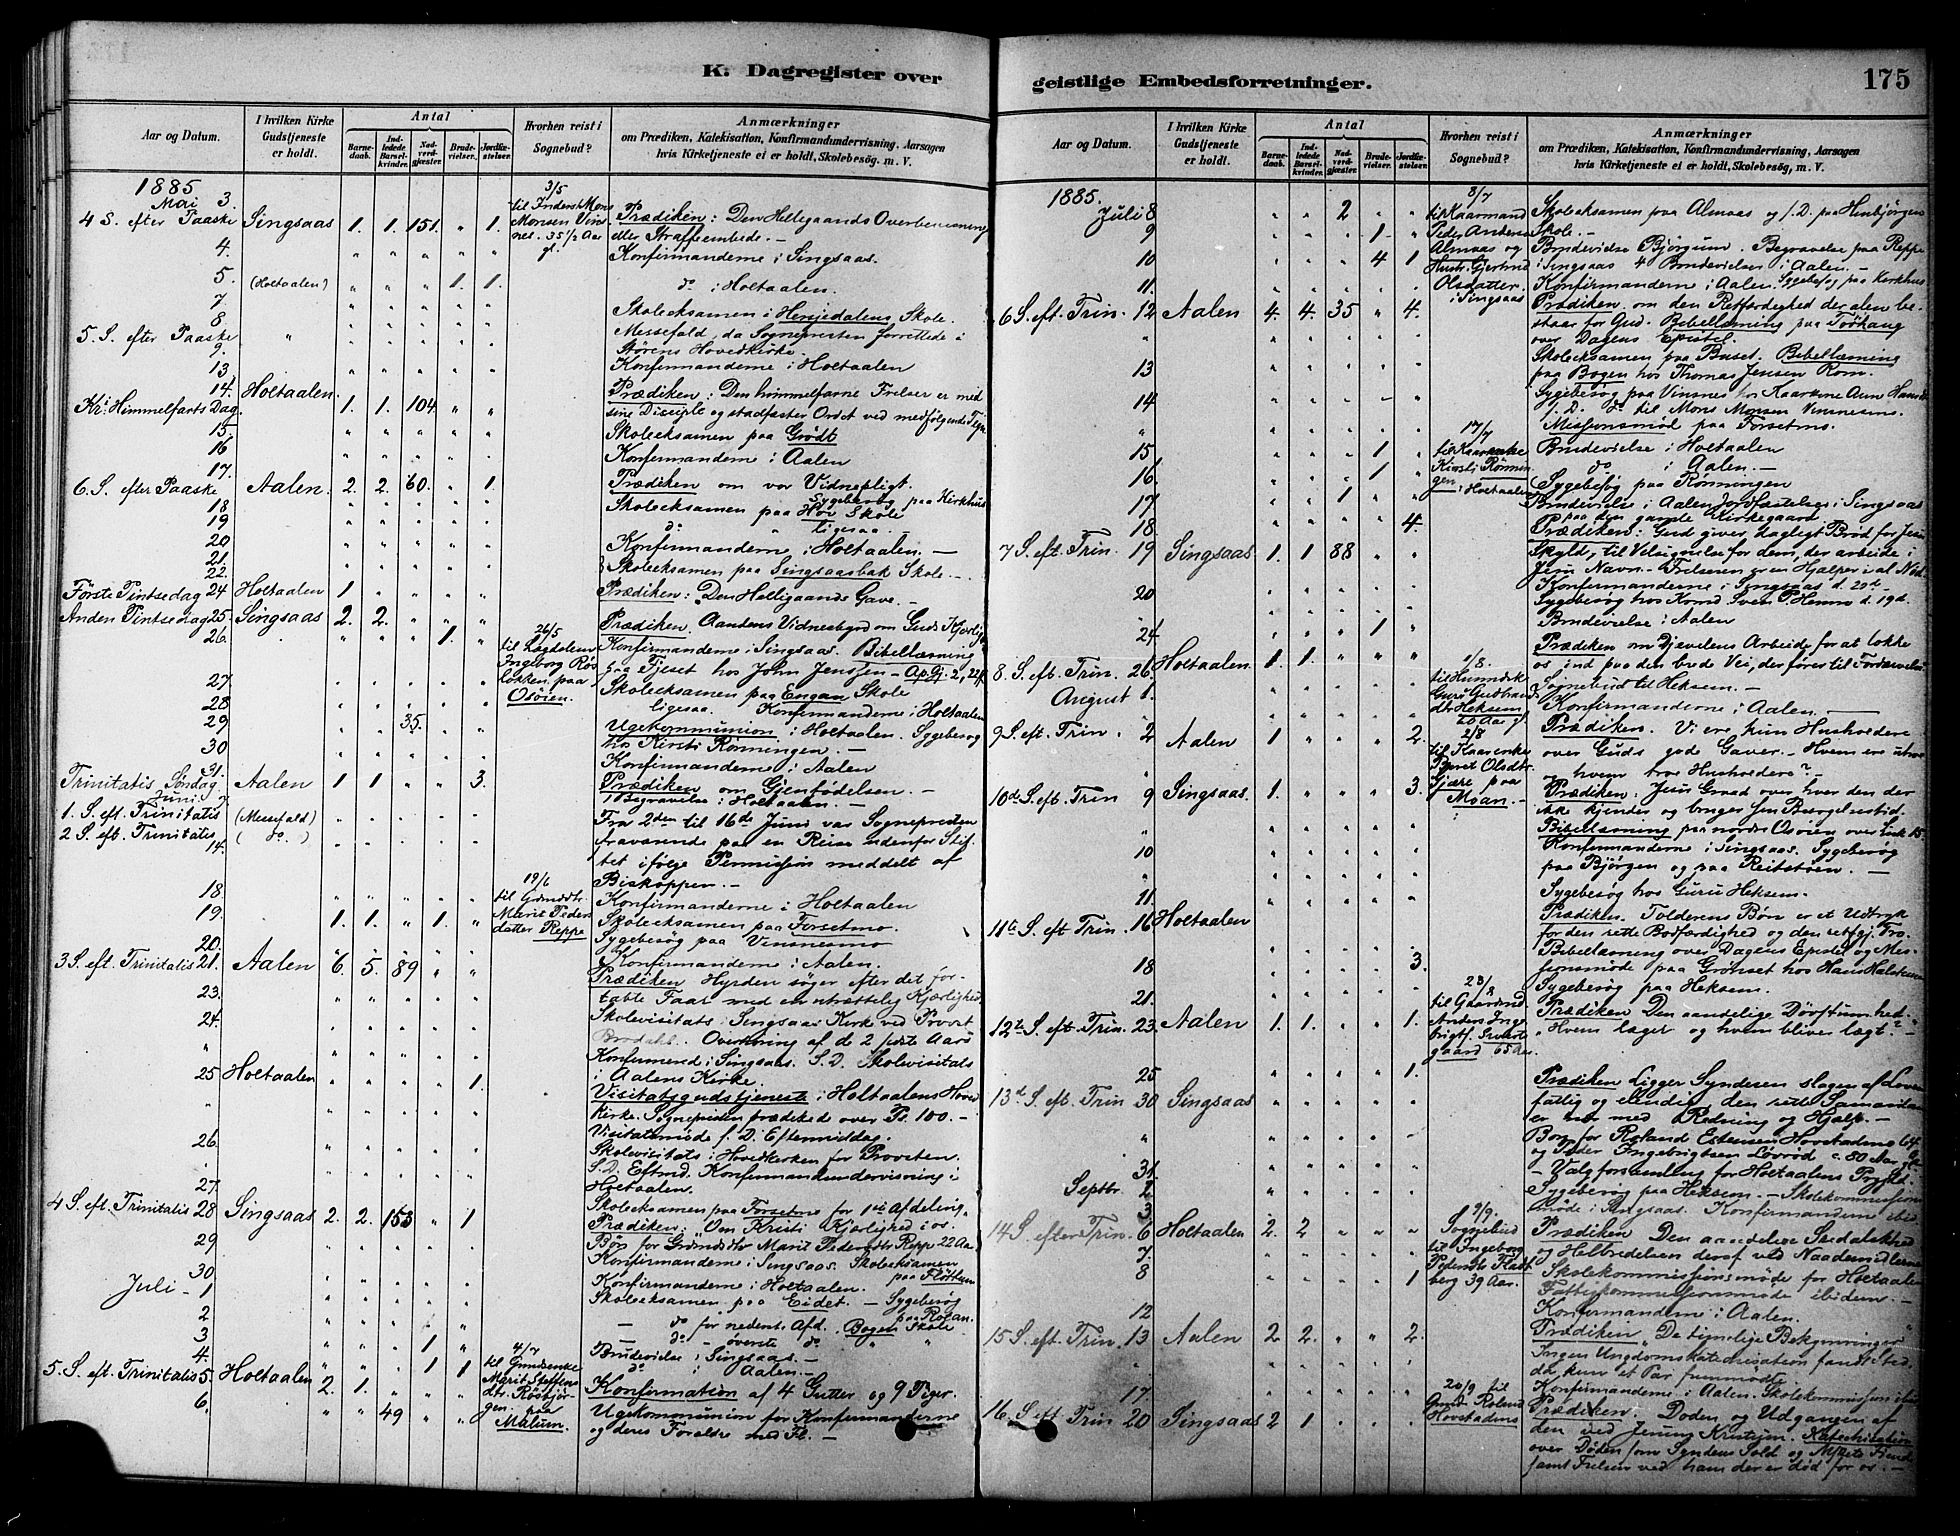 K. Dagregister over geistlige Embedsforretninger.
175
Aar og Datum.
I hvilken Kirke Gudstjeneste er holdt.
Antal
Barnedaab.
Indledede Barselkvinder.
Nadverdgjæster.
Brudevielser.
Jordfæstelser.
Hvorhen reist i Sognebud?
Anmærkninger
om Prædiken, Katekisation, Konfirmandundervisning, Aarsagen
hvis Kirketjeneste ei er holdt, Skolebesøg, m. V.
1885
Mai 3.
4 S. efter Paaske Singsaas 1. 1. 151. " 1. Prædiken: Den Helligaands Overbevisning
eller Straffeembede. —
4. Konfirmanderne i Singsaas.
5. (Holtaalen) 1. 1. do i Holtaalen.
7. Skoleeksamen i Henjedalens Skole.
8
5. S. efter Paaske " Messefald, da Sognepresten forrettede i
Størens Hovedkirke.
9.
13 Konfirmanderne i Holtaalen
14. Holtaalen
Kr. Himmelfarts Dag. 1. 1. 104. " " Prædiken: Den himmelfarne Frelser er med
sine Disciple og stadfæster Ordet ved medfølgende Tegn
15. Skoleeksamen paa Grødt
16 Konfirmanderne i Aalen
17.
6. S. efter Paaske Aalen. 2. 2. 60. " 1. Prædiken om vor Vidnepligt.
18 Skoleeksamen paa Hov Skole
Sygebesøg paa Kirkhus
19 do ligesaa.
20 Konfirmanderne i Holtaalen. —
21.
22. Skoleeksamen paa Singsaasbak Skole. —
Første Pintsedag 24 Holtaalen 1 Prædiken: Den Helligaands Gave. —
Anden Pintsedag 25. Singsaas 2. 2. Prædiken. Aandens Vidnesbyrd om Guds Kjærlighed
26. 1. Konfirmanderne i Singsaas. Bibellæsning
paa Fjeset hos John Jenssen — Ap. Gj. 2, 22
27. Skoleeksamen paa Engan Skole
28 ligesaa. Konfirmanderne i Holtaalen
29 35. Ugekommunion i Holtaalen. Sygebesøg
hos Kirsti Rønningen. —
30 Konfirmanderne i Aalen
31.
Trinitatis Søndag Aalen 1 1 3. Prædiken om Gjenfødelsen. —
1 Begravelse i Holtaalen. —
Juni 7
1. S. eft. Trinitatis (Messefald)
2 S. eft. Trinitatis 14. ( do. )
Fra 2den til 16de Juni var Sognepresten
fraværende paa en Reise udenfor Stif-
tet ifølge Permission meddelt af
Biskoppen. —
18 Konfirmanderne i Holtaalen
19. 1. 1. " 1. Skoleeksamen paa Forsetmo.
20. Sygebesøg paa Vinsnesmo
Konfirmanderne i Aalen.
3 S. eft. Trinitatis 21. Aalen 6. 5. 89 Prædiken Hyrden søger efter det for-
tabte Faar med en utrættelig Kjærlighed.
23.
24. Skolevisitats i Singsaas Kirke ved Provst
Overhøring af de 2 sidste Aars
Konfirmered i Singsaas. S. D. Skolevisitats
i Aalens Kirke.
25 Holtaalen 1. Visitatsgudstjeneste i Holtaalens Hoved
kirke. Sognepresten prædikede over Ps. 100. —
Visitatsmøde s. D. Eftermiddag.
26. Skolevisitats i Hovedkirken for Provsten.
S. D. Eftmd. Konfirmandundervisning i
Holtaalen.
27. Skoleeksamen paa Forsetmo for 1ste Afdeling
4 S. eft. Trinitatis 28 Singsaas 2. 2. 153 " 1 Prædiken: Om Kristi Kjærlighed i os.
Bøn for Gdmdsdtr Marit Pedersdtr Repp 22 Aar
29 Konfirmanderne i Singsaas. Skoleeksamen
paa Fløttum
30 Konfirmanderne i Holtaalen.
Juli — 1 Skoleeksamen paa Eidet. — Sygebesøg
paa Rogan.
2 — do for nederste Afd. Bogen Skole
3 — do — øverste do " "
4. 1 Brudevielse i Singsaas. —
1 1 do i Aalen. —
5. S. eft. Trinitatis 5. Holtaalen 2. 1. Konfirmation af 4 Gutter og 9 Piger.
6. 49 Ugekommunion for Konfirmanderne
og deres Forældre med Fl. —
3/5
til Inderst Mons
Monsen Vins
nes. 35 1/2 Aar
gl.
26/5
til Lægdslem
Ingeborg Røs
lokken paa
Osøien
19/6
til Gdmdsdtr
Marit Peders
datter Reppe
4/7
til Gmdsenke
Marit Steffens
dtr. Røsbjør
gen. paa
Malum.
1885.
Juli 8 2 Skoleeksamen paa Almaas og s. D. paa Henbjørgen
Skole. —
9 1 Brudevielse Bjørgum. Begravelse paa Reppe
10 4 1 i Singsaas 4 Brudevielser i Aalen. —
11. Konfirmanderne i Aalen. Sygebesøg paa Kirkhus
6 S. eft. Trin. 12 Aalen 4. 4. 35 " 4. Prædiken om den Retfærdighed der alene be-
staar for Gud. Bibellæsning paa Trøhaug
over Dagens Epistel.
13 Skoleeksamen paa Buset. Bibellæsning
paa Bogen hos Thomas Jensen Rom.
14 Sygebesøg paa Vinsnes hos Kaarkone Ane Hansdt
s. D. do til Mons Monsen Vinsnesmo.
" Missionsmøde paa Forsetmo.
15 1 Brudevielse i Holtaalen
16 1 do i Aalen. —
17. 1 Sygebesøg paa Rønningen
18. 4. Brudevielse i Aalen Jordfæstelse i Singsaas
paa den gamle Kirkegaard
7 S. eft. Trin. 19 Singsaas 1. 1 88 Prædiken: Gud giver dagligt Brød for Jesu
Skyld, til Velsignelse for dem, der arbeide i
Jesu Navn. — Frelseren er en Hjælper i al Nød.
20 Konfirmanderne i Singsaas d. 20de.
Sygebesøg hos Kmd Sven P. Hemmo d. 19d.
24. 1 Brudevielse i Aalen
8 S. eft. Trin. 26. Holtaalen 1. 1. Prædiken om Djevelens Arbeide for at lokke
os ind paa den brede Vei, der fører til Fordærvelse
August 1. Sognebud til Heksem. —
Konfirmanderne i Aalen. —
9 S. eft. Trin. 2 Aalen 1 2. Prædiken. Vi ere kun Husholdere
over Guds gode Gaver. — Hvem ere utro
og hvem tro Husholdere? —
10de S. eft. Trin 9 Singsaas. 1. 3. Prædiken: Jesu Graad over hver den der
ikke kjender og bruger sin Besøgelsestid.
Bibellæsning paa nordre Osøien over Luk 15.
10 Konfirmanderne i Singsaas. Sygebesøg
paa Bjørgen og paa Reitstøen. —
11. Sygebesøg hos Guru Heksem.
11te S. eft Trin. 16 Holtaalen Prædiken. Tolderens Bøn er et Udtryk
for den rette Bodfærdighed og den retfgj. Tro.
18 3. Bibellæsning over Dagens Epistel og Mis-
sionsmøde paa Grønset hos Hans Halstensen
21. Sygebesøg paa Heksem.
12te S. eft. Trin. 23. Aalen 1. 1. 1. Prædiken Den aandelige Døvstumhed.
"Hvem læger og hvem bliver lægt? —
25 1.
13de S. eft. Trin 30 Singsaas Prædiken Ligger Synderen slagen af Loven
fattig og elendig, den rette Samaritan
er nær med Redning og Hjælp. —
Bøn for Roland Estensen Hovstadeng 64
og Peder Ingebrigtsen Løvrød c. 80 Aar gl.
31. — Valgforsamling for Holtaalens Prgjld.
Septbr. 2. Sygebesøg paa Heksem. — Skolekommissions
3 møde i Singsaas. Konfirmanderne ibid
14 S. efter Trin. 6 Holtaalen 2. 2 Prædiken Den aandelige Spedalskhed
og Helbredelsen deraf ved Naademidlerne
7 Skolekommissionsmøde for Holtaalen
8 1 Fattigkommissionsmøde ibidem. —
12 Konfirmanderne i Aalen.
15 S. eft. Trin. 13 Aalen 2 2. 2. Prædiken "De timelige Bekymringer"
Ingen Ungdomskatekisation fandt Sted,
da kun et Par fremmødte.
17 Konfirmanderne i Aalen. Skolekommission ibid
16. S. eft Trin. 20 Singsaas 2 1 Prædiken. Døden og Udgangen af
den ved Jening Kristjen. Katechisation
over Døden som Syndens Sold og Fiende
samt Frelsen ved ham der er død for os. —
8/7
til Kaarmand
Peder Anders
Almaas og
Hustr. Gjertrud
Olsdatter
i Singsaas
17/7
til Kaarenke
Kirsti Rønnin
gen i Holtaalen
1/8.
til Huusmdsk
Guri Gudbrands
dtr Heksem
60 Aar gl.
2/8
til Kaarenke
Beret Olsdtr
Gjære paa
Moan. —
23/8
til Gaarmd
Anders Inge
brigts.
gaard 65 Aar
9/9.
Soggebud
til Ingeborg
Pedersdt Flat
berg 39 Aar.
20/9 til
Gmd Roland
Hovstadens